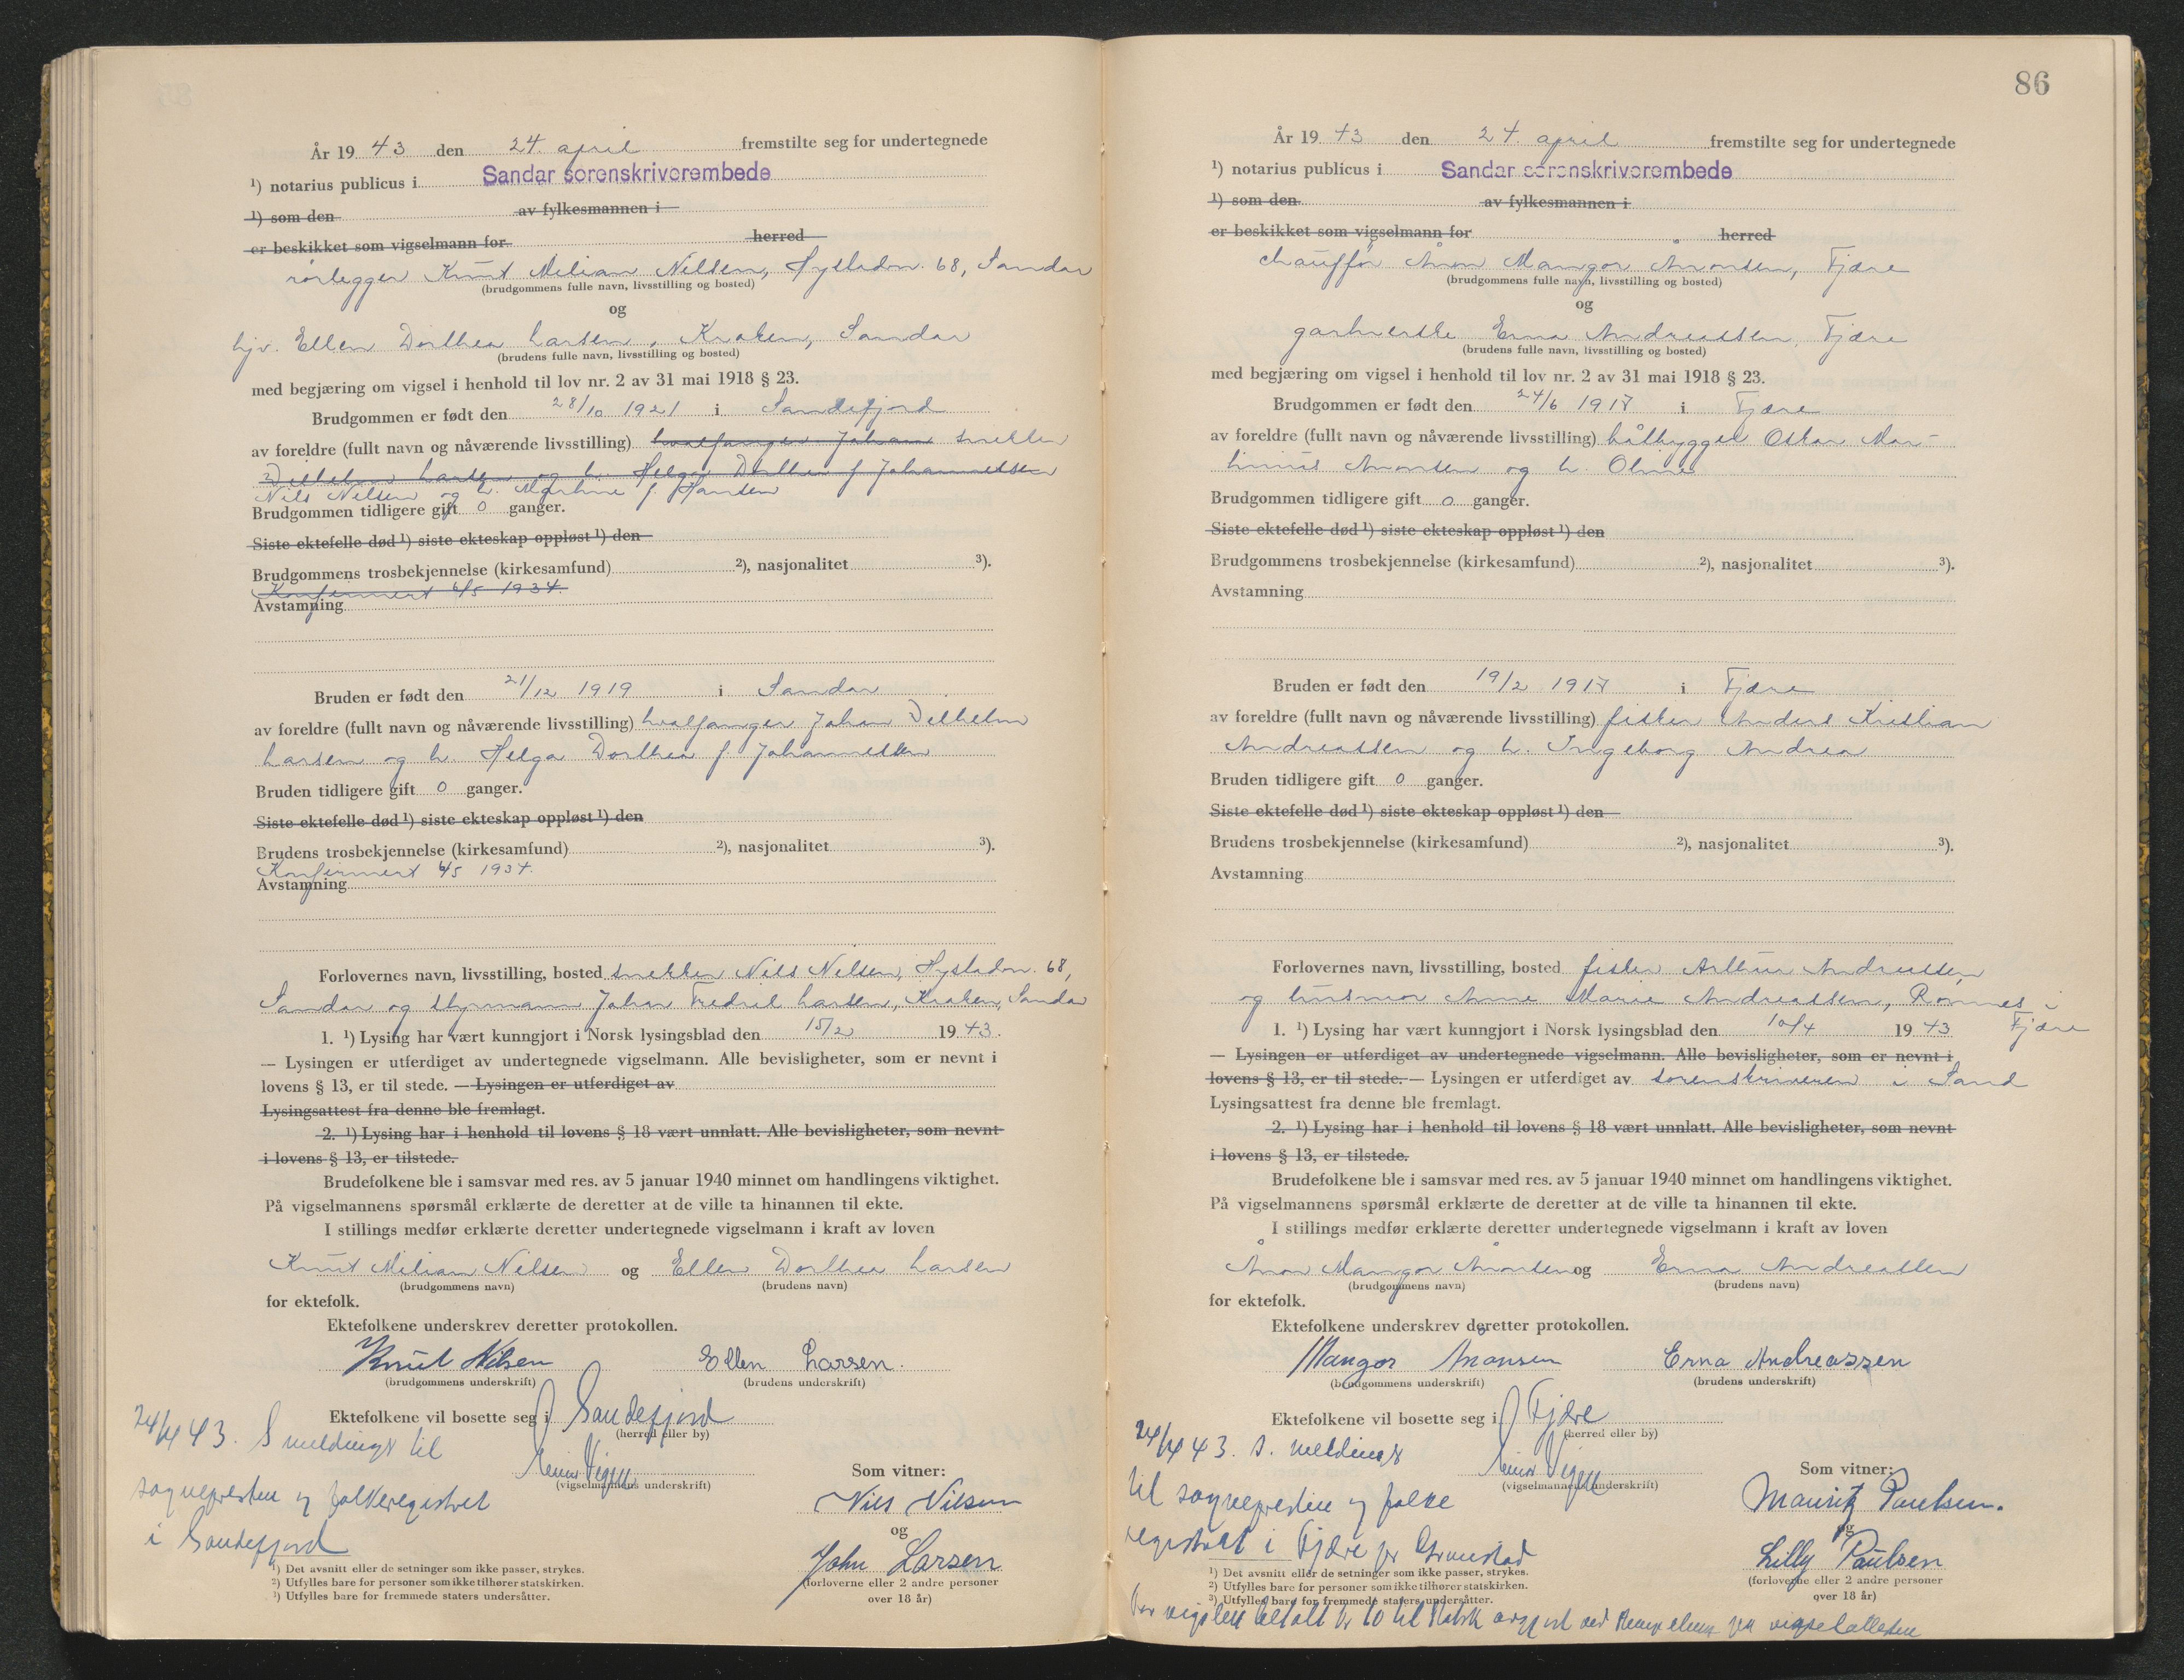 År 1943 den 24. april fremstilte seg for undertegnede
¹) notarius publicus i Sandar sorenskriverembede
¹) som den av fylkesmannen i
er beskikket som vigselmann for herred
rørlegger Knut Milian Nilsen, Hystadvn. 68, Sandar
(brudgommens fulle navn, livsstilling og bosted)
og
hjv. Ellen Dorthea Larsen, Kraken, Sandar
(brudens fulle navn, livsstilling og bosted)
med begjæring om vigsel i henhold til lov nr. 2 av 31 mai 1918 § 23.
Brudgommen er født den 28/10 1921 i Sandefjord
av foreldre (fullt navn og nåværende livsstilling) hvalfanger Johan snekker
Vilhelm Larsen og h. Helga Dorthea f. Johannessen
Nils Nilsen og h. Marthine f. Hansen
Brudgommen tidligere gift 0 ganger.
Siste ektefelle død ¹) siste ekteskap oppløst ¹) den
Brudgommens trosbekjennelse (kirkesamfund) ²), nasjonalitet ³).
Konfirmert 6/5 1934.
Avstamning
Bruden er født den 21/12 1919 i Sandar
av foreldre (fullt navn og nåværende livsstilling) hvalfanger Johan Vilhelm
Larsen og h. Helga Dorthea f. Johannessen
Bruden tidligere gift 0 ganger.
Siste ektefelle død ¹) siste ekteskap oppløst ¹) den
Brudens trosbekjennelse (kirkesamfund) ²), nasjonalitet ³).
Konfirmert 6/5 1934.
Avstamning
Forlovernes navn, livsstilling, bosted snekker Nils Nilsen, Hystadvn. 68,
Sandar og styrmann Johan Fredrik Larsen, Kraken, Sandar
1. ¹) Lysing har vært kunngjort i Norsk lysingsblad den 15/2 1943.
— Lysingen er utferdiget av undertegnede vigselmann. Alle bevisligheter, som er nevnt i
lovens § 13, er til stede. — Lysingen er utferdiget av
Lysingsattest fra denne ble fremlagt.
2. ¹) Lysing har i henhold til lovens § 18 vært unnlatt. Alle bevisligheter, som nevnt
i lovens § 13, er tilstede.
Brudefolkene ble i samsvar med res. av 5 januar 1940 minnet om handlingens viktighet.
På vigselmannens spørsmål erklærte de deretter at de ville ta hinannen til ekte.
I stillings medfør erklærte deretter undertegnede vigselmann i kraft av loven
Knut Milian Nilsen og Ellen Dorthea Larsen
(brudgommens navn) (brudens navn)
for ektefolk.
Ektefolkene underskrev deretter protokollen.
Knut Nilsen Ellen Larsen.
(brudgommens underskrift) (brudens underskrift)
Ektefolkene vil bosette seg i Sandefjord
(herred eller by)
24/4 43. S meldingr til
sognepresten og folkeregistret
i Sandefjord
(vigselmannens underskrift)
Som vitner:
Nils Nilsen
og
John Larsen
(forloverne eller 2 andre personer
over 18 år)
¹) Det avsnitt eller de setninger som ikke passer, strykes.
²) Utfylles bare for personer som ikke tilhører statskirken.
³) Utfylles bare for fremmede staters undersåtter.
86
År 1943 den 24. april fremstilte seg for undertegnede
¹) notarius publicus i Sandar sorenskriverembede
¹) som den av fylkesmannen i
er beskikket som vigselmann for herred
chauffør Åron Mangor Åronsen, Fjære
(brudgommens fulle navn, livsstilling og bosted)
og
Erna Andreassen, Fjære
(brudens fulle navn, livsstilling og bosted)
med begjæring om vigsel i henhold til lov nr. 2 av 31 mai 1918 § 23.
Brudgommen er født den 24/6 1917 i Fjære
av foreldre (fullt navn og nåværende livsstilling) båtbygger Oskar Mar-
tinius Aronsen og h. Oline
Brudgommen tidligere gift 0 ganger.
Siste ektefelle død ¹) siste ekteskap oppløst ¹) den
Brudgommens trosbekjennelse (kirkesamfund) ²), nasjonalitet ³).
Avstamning
Bruden er født den 19/2 1917 i Fjære
av foreldre (fullt navn og nåværende livsstilling) fisker Anders Kristian
Andreassen og h. Ingeborg Andrea
Bruden tidligere gift 0 ganger.
Siste ektefelle død ¹) siste ekteskap oppløst ¹) den
Brudens trosbekjennelse (kirkesamfund) ²), nasjonalitet ³).
Avstamning
Forlovernes navn, livsstilling, bosted fisker Arthur Andreassen
og husmor Anne Marie Andreassen, Rønnes i
Fjære
1. ¹) Lysing har vært kunngjort i Norsk lysingsblad den 10/4 1943
— Lysingen er utferdiget av undertegnede vigselmann. Alle bevisligheter, som er nevnt i
lovens § 13, er til stede. — Lysingen er utferdiget av sorenskriveren i Sand
Lysingsattest fra denne ble fremlagt.
2. ¹) Lysing har i henhold til lovens § 18 vært unnlatt. Alle bevisligheter, som nevnt
i lovens § 13, er tilstede.
Brudefolkene ble i samsvar med res. av 5 januar 1940 minnet om handlingens viktighet.
På vigselmannens spørsmål erklærte de deretter at de ville ta hinannen til ekte.
I stillings medfør erklærte deretter undertegnede vigselmann i kraft av loven
Åron Mangor Åronsen og Erna Andreassen
(brudgommens navn) (brudens navn)
for ektefolk.
Ektefolkene underskrev deretter protokollen.
Mangor Aronsen Erna Andreassen
(brudgommens underskrift) (brudens underskrift)
Ektefolkene vil bosette seg i Fjære
(herred eller by)
24/4 43. S. meldingr
til sognepresten og folke
registret i Fjære pr Grimstad
(vigselmannens underskrift)
Som vitner:
Mauritz Paulsen.
og
Lilly Paulsen
(forloverne eller 2 andre personer
over 18 år)
¹) Det avsnitt eller de setninger som ikke passer, strykes.
²) Utfylles bare for personer som ikke tilhører statskirken.
³) Utfylles bare for fremmede staters undersåtter.
For vigslen betalt kr 10 til